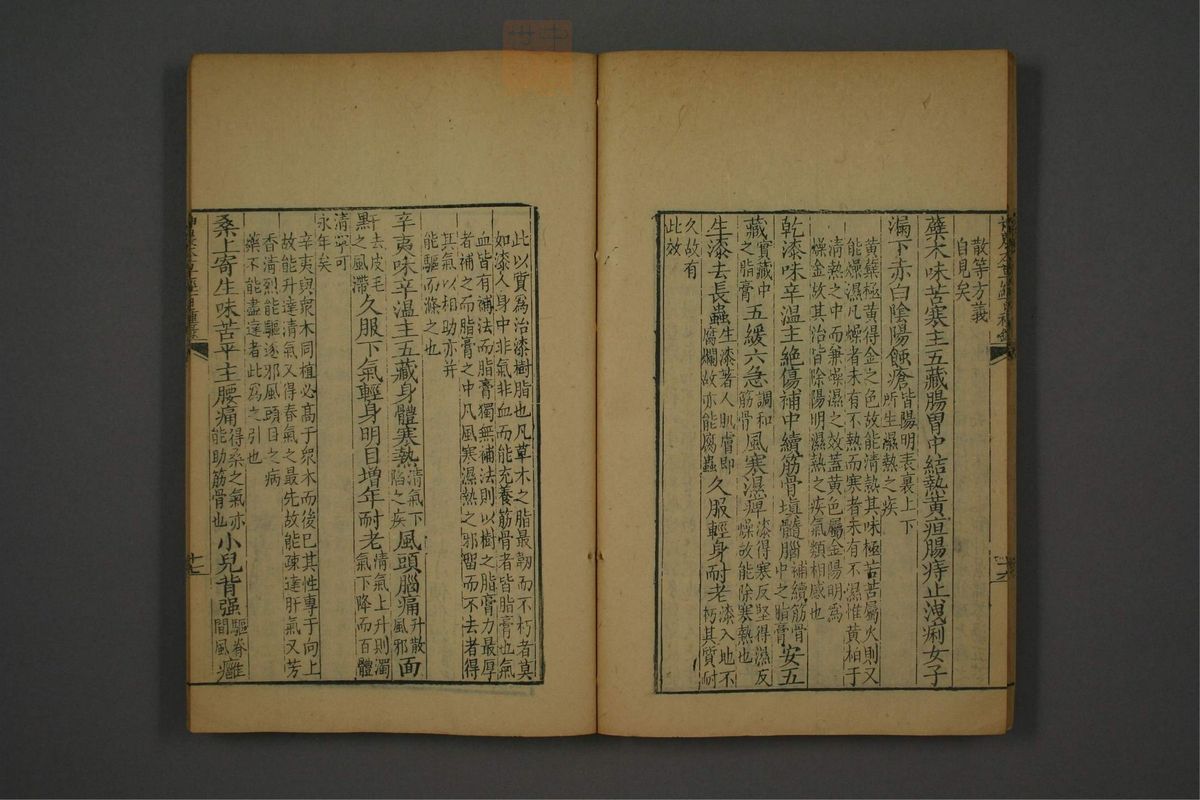 散等方義
自見矣
蘗木味苦寒主五藏腸胃中結熱黃疸腸痔止洩痢女子
漏下赤白陰陽蝕瘡皆陽明表裏上下
所生濕熱之疾
黃蘗極黃得金之色故能清熱其味極苦苦屬火則又
能燥濕凡燥者未有不熱而寒者未有不濕惟黃柏于
清熱之中而兼燥濕之效蓋黃色屬金陽明為
燥金故其治皆除陽明濕熱之疾氣類相感也
乾漆味辛溫主絕傷補中續筋骨塡髓腦補續筋骨
中之脂膏安五
藏實藏中
之脂膏五緩六急調和
筋骨風寒濕痺漆得寒反堅得濕反
燥故能除寒熱也
生漆去長蟲生漆著人肌膚即
腐爛故亦能腐蟲久服輕身耐老漆入地不
朽其質耐
久故有
此效
此以質為治漆樹脂也凡草木之脂最韌而不朽者莫
如漆人身中非氣非血而能充養筋骨者皆脂膏也氣
血皆有補法而脂膏獨無補法則以樹之脂膏力最厚
者補之而脂膏之中凡風寒濕熱之邪留而不去者得
其氣以相助亦并
能驅而滌之也
辛夷味辛溫主五藏身體寒熱清氣下
陷之疾風頭腦痛升散
風邪面
䵟去皮毛
之風滯久服下氣輕身明目增年耐老清氣上升則濁
氣下降而百體
清寧可
永年矣
辛夷與衆木同植必高于衆木而後已其性專于向上
故能升達清氣又得春氣之最先故能疎達肝氣又芳
香清烈能驅逐邪風頭目之病
藥不能盡達者此為之引也
桑上寄生味苦平主腰痛得桑之氣亦
能助筋骨也小兒背强驅脊
間風癰